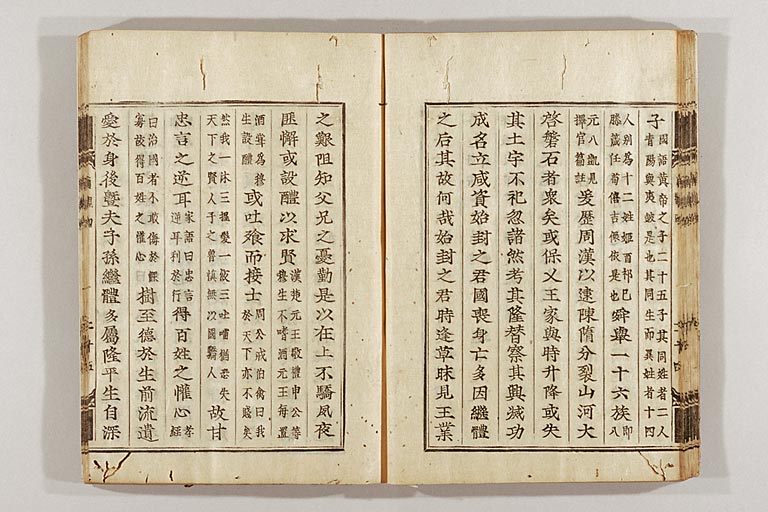 子國語黃帝之子二十五子其同姓者二人青陽與夷鼓是也其同生而異姓者十四
人別為十二姓姬酉祁巳滕葴任荀僖姞儇依是也舜舉一十六族即八
元八凱見擇官篇註爰歷周漢以逮陳隋分裂山河大
啓磐石者衆矣或保乂王家與時升降或失
其土宇不祀忽諸然考其隆替察其興滅功
成名立咸資始封之君國喪身亡多因繼體
之后其故何哉始封之君時逢草昧見王業
之艱阻知父兄之憂勤是以在上不驕夙夜
匪懈或設醴以求賢漢楚元王敬禮申公等穆生不嗜酒元王每置
酒常為穆生設醴或吐飱而接士周公戒伯禽曰我於天下亦不賤矣
然我一沐三握髮一飯三吐哺猶恐失天下之賢人子之魯慎無以國驕人故甘
忠言之逆耳家語曰忠言逆耳利於行得百姓之懽心孝經
曰治國者不敢侮於鰥寡故得百姓之懽心樹至德於生前流遺
愛於身後曁夫子孫繼體多屬隆平生自深